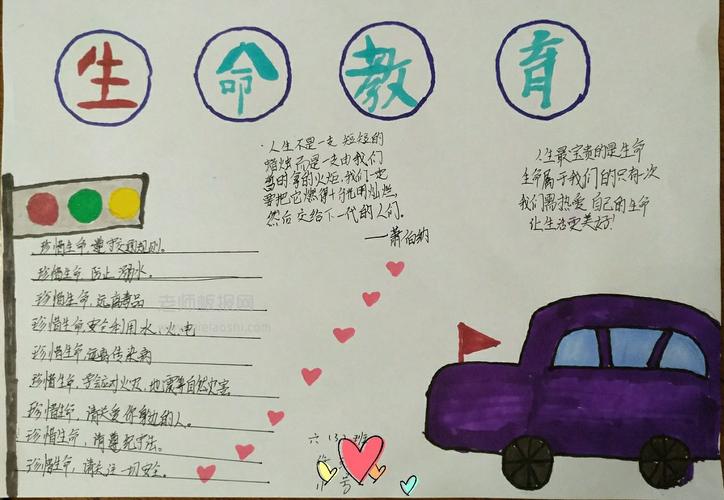 生命教育
·人生不是一支短短的
蜡烛而是一支由我们
暂时拿的火炬,我们一定
要把它燃得十分光明灿烂,
然后交给下一代的人们。
——萧伯纳
人生最宝贵的是生命
生命属于我们的只有一次
我们需热爱自己的生命
让生活更美好!
珍惜生命,遵守交通规则。
珍惜生命,防止溺水。
珍惜生命,远离毒品
珍惜生命,安全利用水、火、电
珍惜生命,远离传染病
珍惜生命,学会应对火灾、地震等自然灾害
珍惜生命,请关爱你身边的人。
珍惜生命,请遵纪守法。
珍惜生命,请关注一切安全。
老师板报网
六(3)班
号